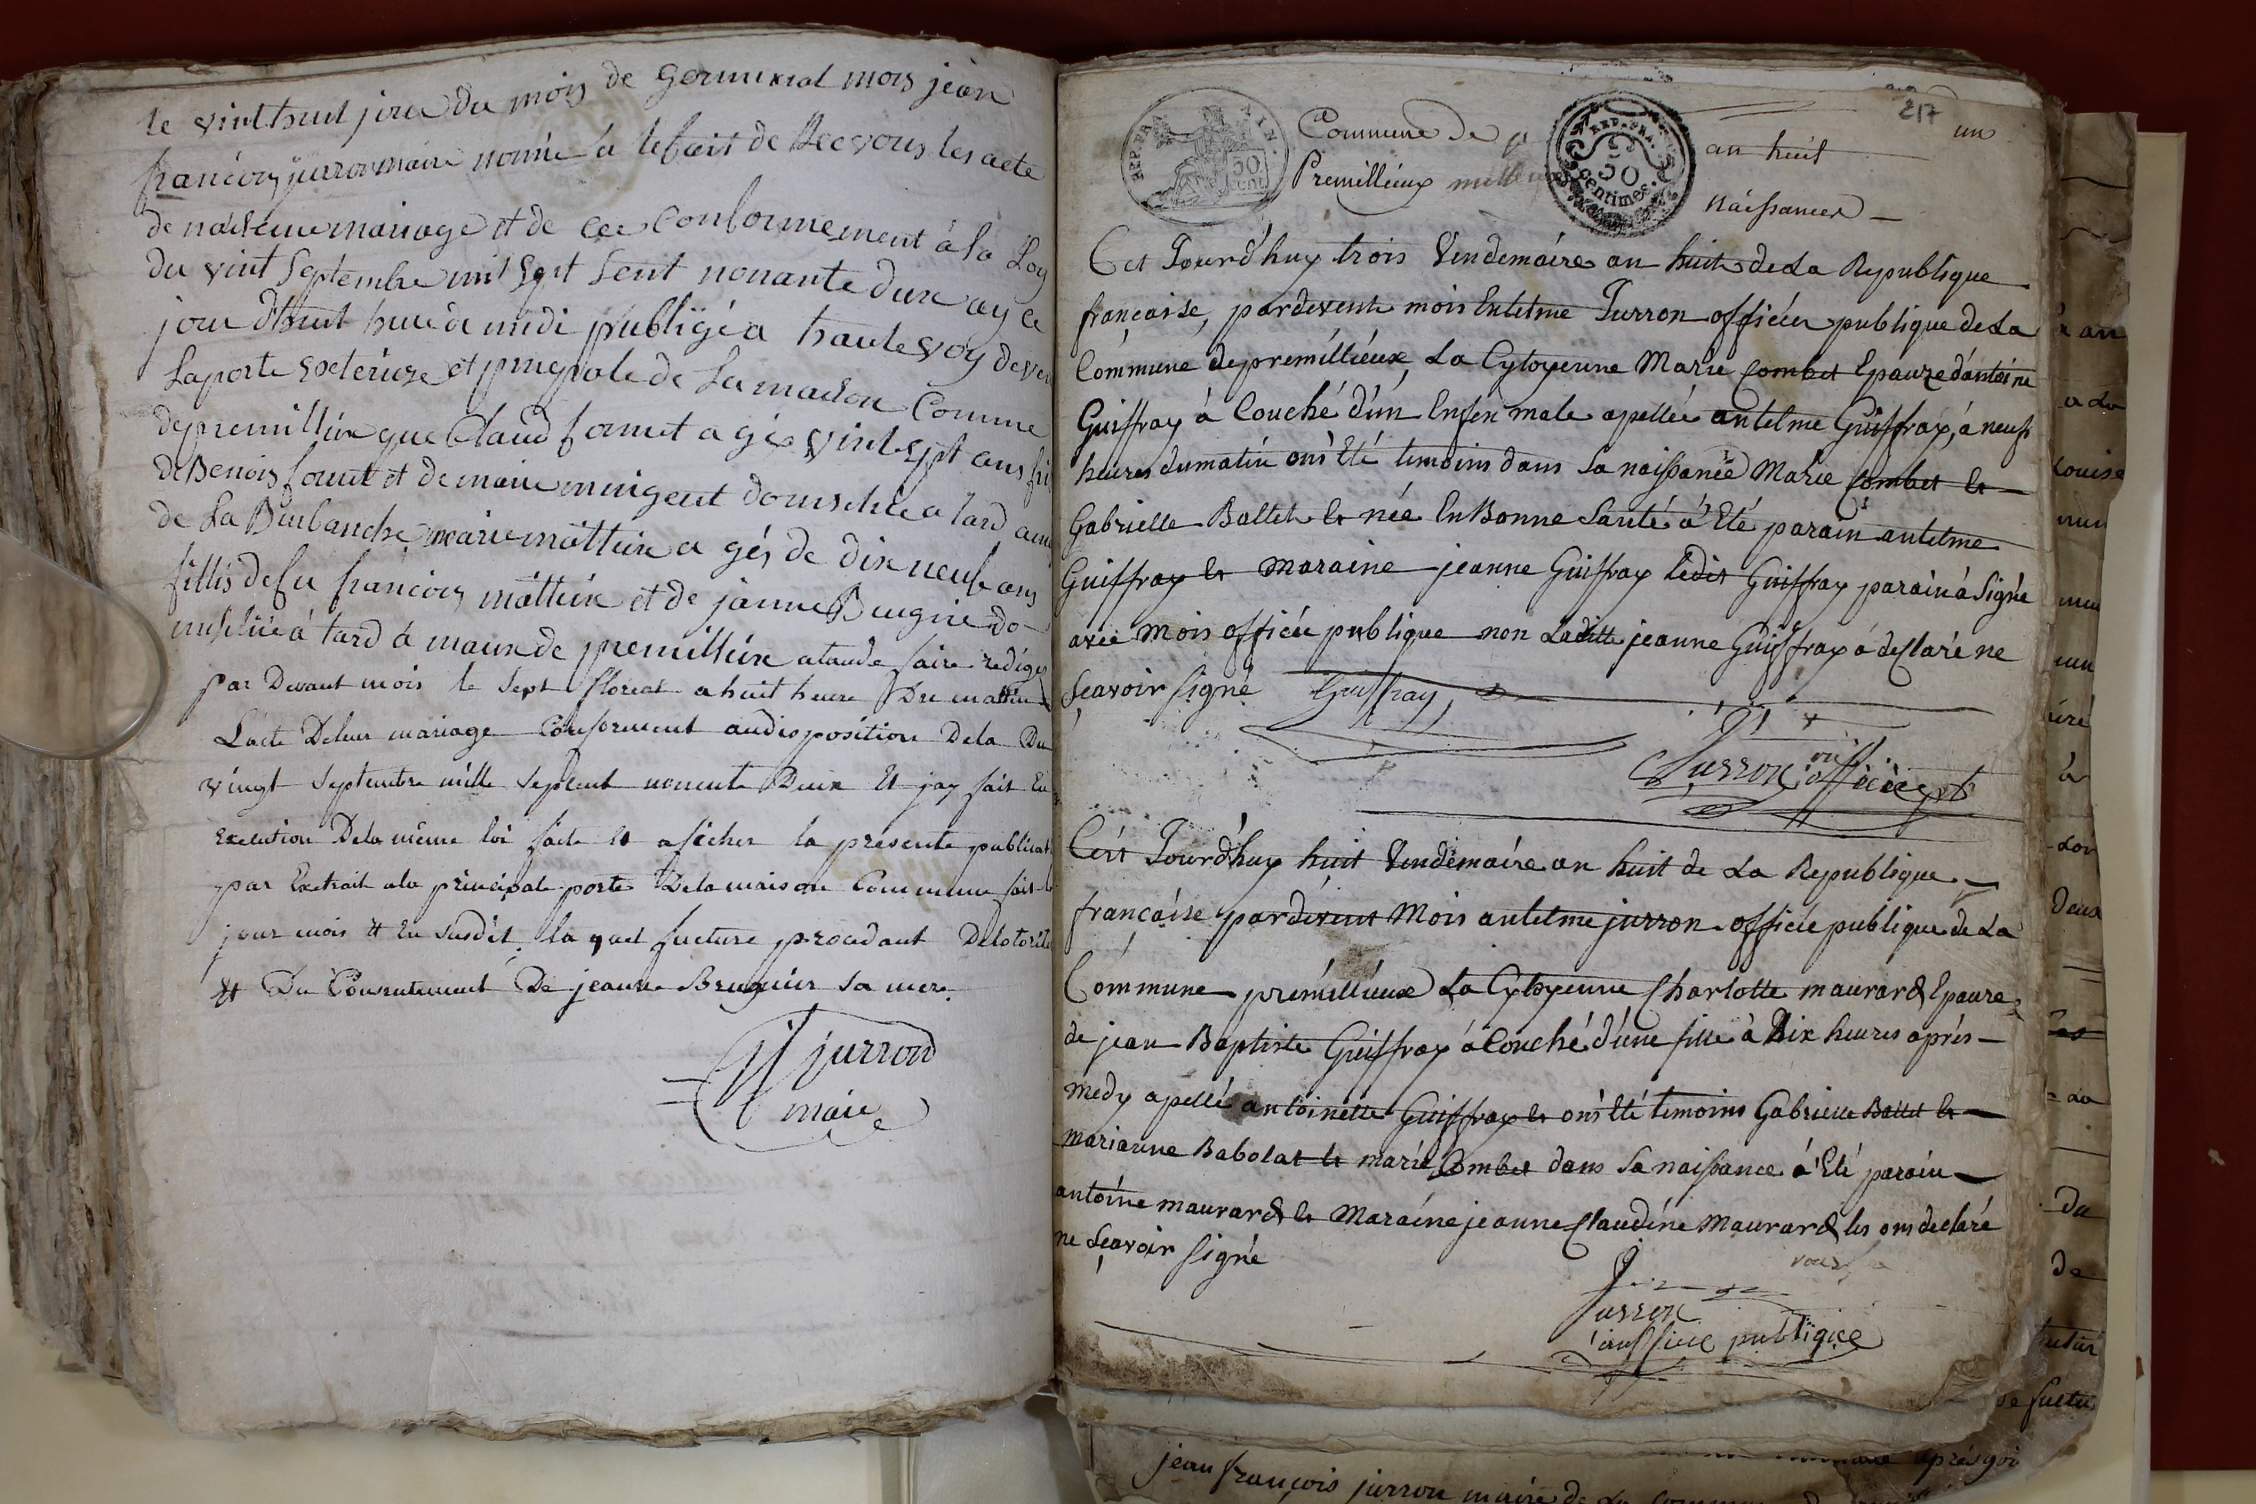 le vint huit jour du mois de germinal mois jean
françois jurron maire nomé a lefait de Recvous les acte
de naisence mariage et de ces Conformement à la Loy
du vint Septembre mil Sept Sent nonante dux ay ce
jour d'huit heure de midi publigé a haute voy deven
la porte exterieure et prinpale de la maison Comune
de premillieu que Claud fornet a gés vint sept ans fis
de Benois fornet et de marie mingeut
de la Burbanche, marie mattieu a gés de dix neuf ans
fillis de fu françois mattieu et de janne Brugnie do-
misiliée à tard à maux de premillieu faire rediges
par Devant mois le Sept floreal a huit heure Du mattin
L'acte Deleur mariage Conforment audisposition Dela Du
vingt Septembre mille Septcent nonente Deux Et jay fait En
Execution Dela même loi facte Et aficher la presente publicat
par Extrait ala principale porte Dela maison Commune fait le
jour mois & En susdit. la quel future procedant Delotorité
& Du Consentement De jeanne Bruguier sa mere.
jf jurron
maire
217
un
REP. FRA.
50
cent
Commune de
Premillieux
REP. FRA.
50
centimes
an huit
Naissances
Cet Jourd'huy trois Vendemaire an huit de La Republique
française, pardevent mois Entelme Jurron officier publique de La
Commune de premillieux, La Cytoyenne Marie Combet Epauze d'antoine
Guiffray à Couché d'ún Enfen male apellée antelme Guiffray, á neuf
heures du matin ons Eté temoins dans sa naissance Marie Combet Et
Gabrielle Ballet Et née En Bonne Santé á Eté parain antelme
Guiffray Et Maraine jeanne Guiffray ledit Guiffray parain á Signé
avec Mois officier publique non Laditte jeanne Guiffray á declaré ne
Sçavoir Signé Guiffray
Jurron officier pub
Cért Jourd'huy huit Vendémaire an huit de La Republique
française pardevent Mois antelme jurron officié publique de La
Commune prémillieux La Cytoyenne Charlotte maurard Epauze
de jean Baptiste Guiffray á Couché d'une fille à Dix heures aprés
medy apellé antoinette Guiffray Et ons Eté temoins Gabrielle Ballet Et
marianne Babolat Et marie Combet dans Sa naissance á Eté parain
antoine maurard Et Maraine jeanne Claudine Maurard les ons declaré
ne Sçavoir Signé
Jurron
officie publique
jean françois jurron maire de La Commune